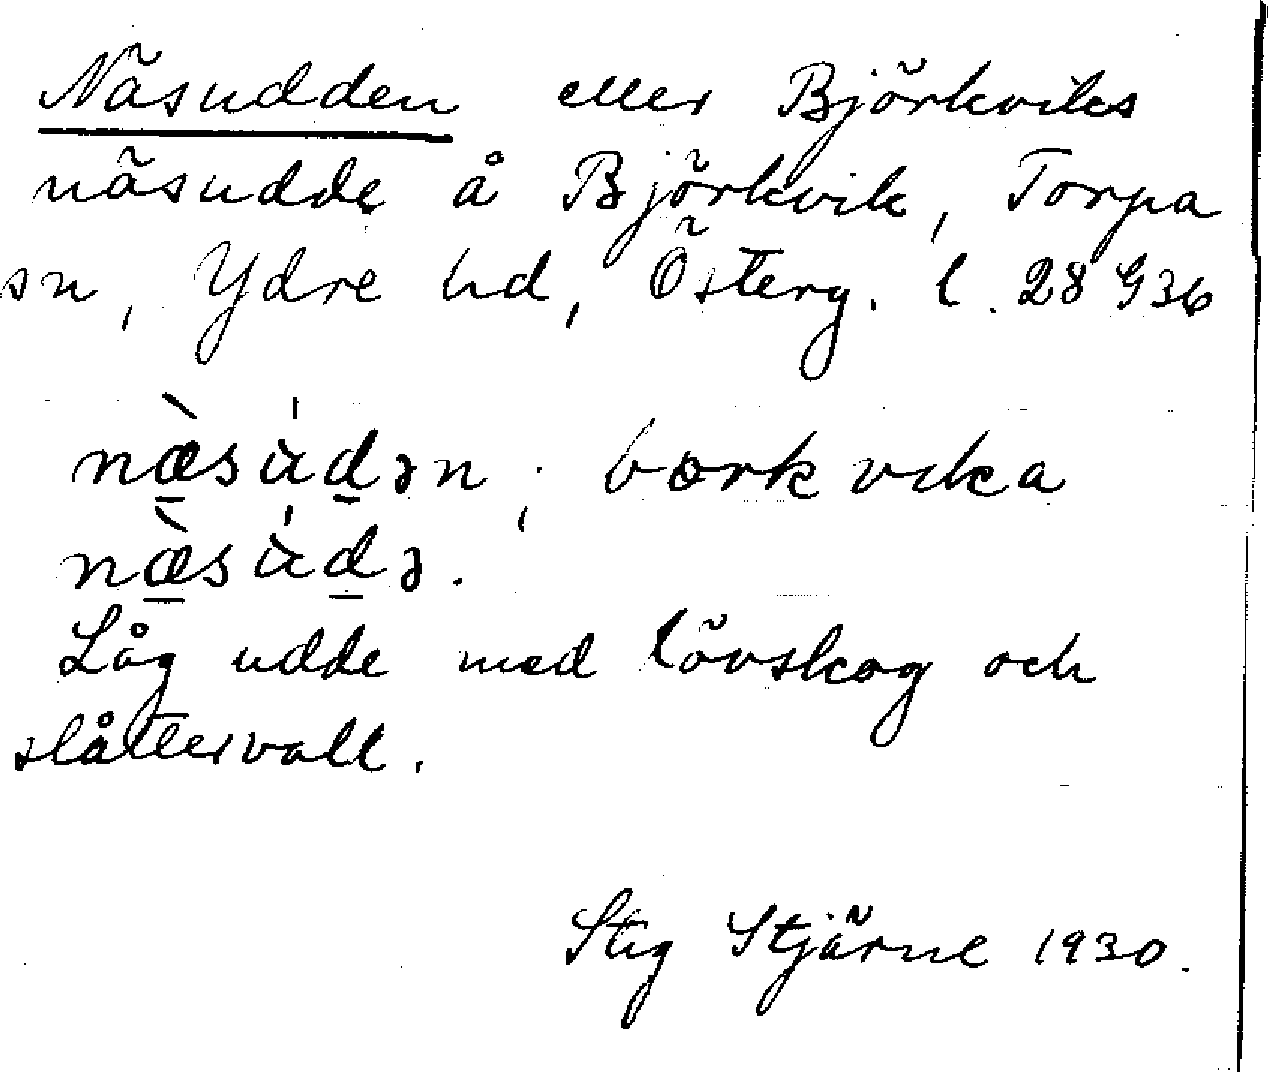 Näsudden eller Björkviks
näsudde å Björkvik, Torpa
sn, Ydre hd, Österg. l. 28 G 36
næ̀sùdən; børkvika
næ̀sùdə.
Låg udde med lövskog och
slåttervall.
Stig Stjärne 1930.